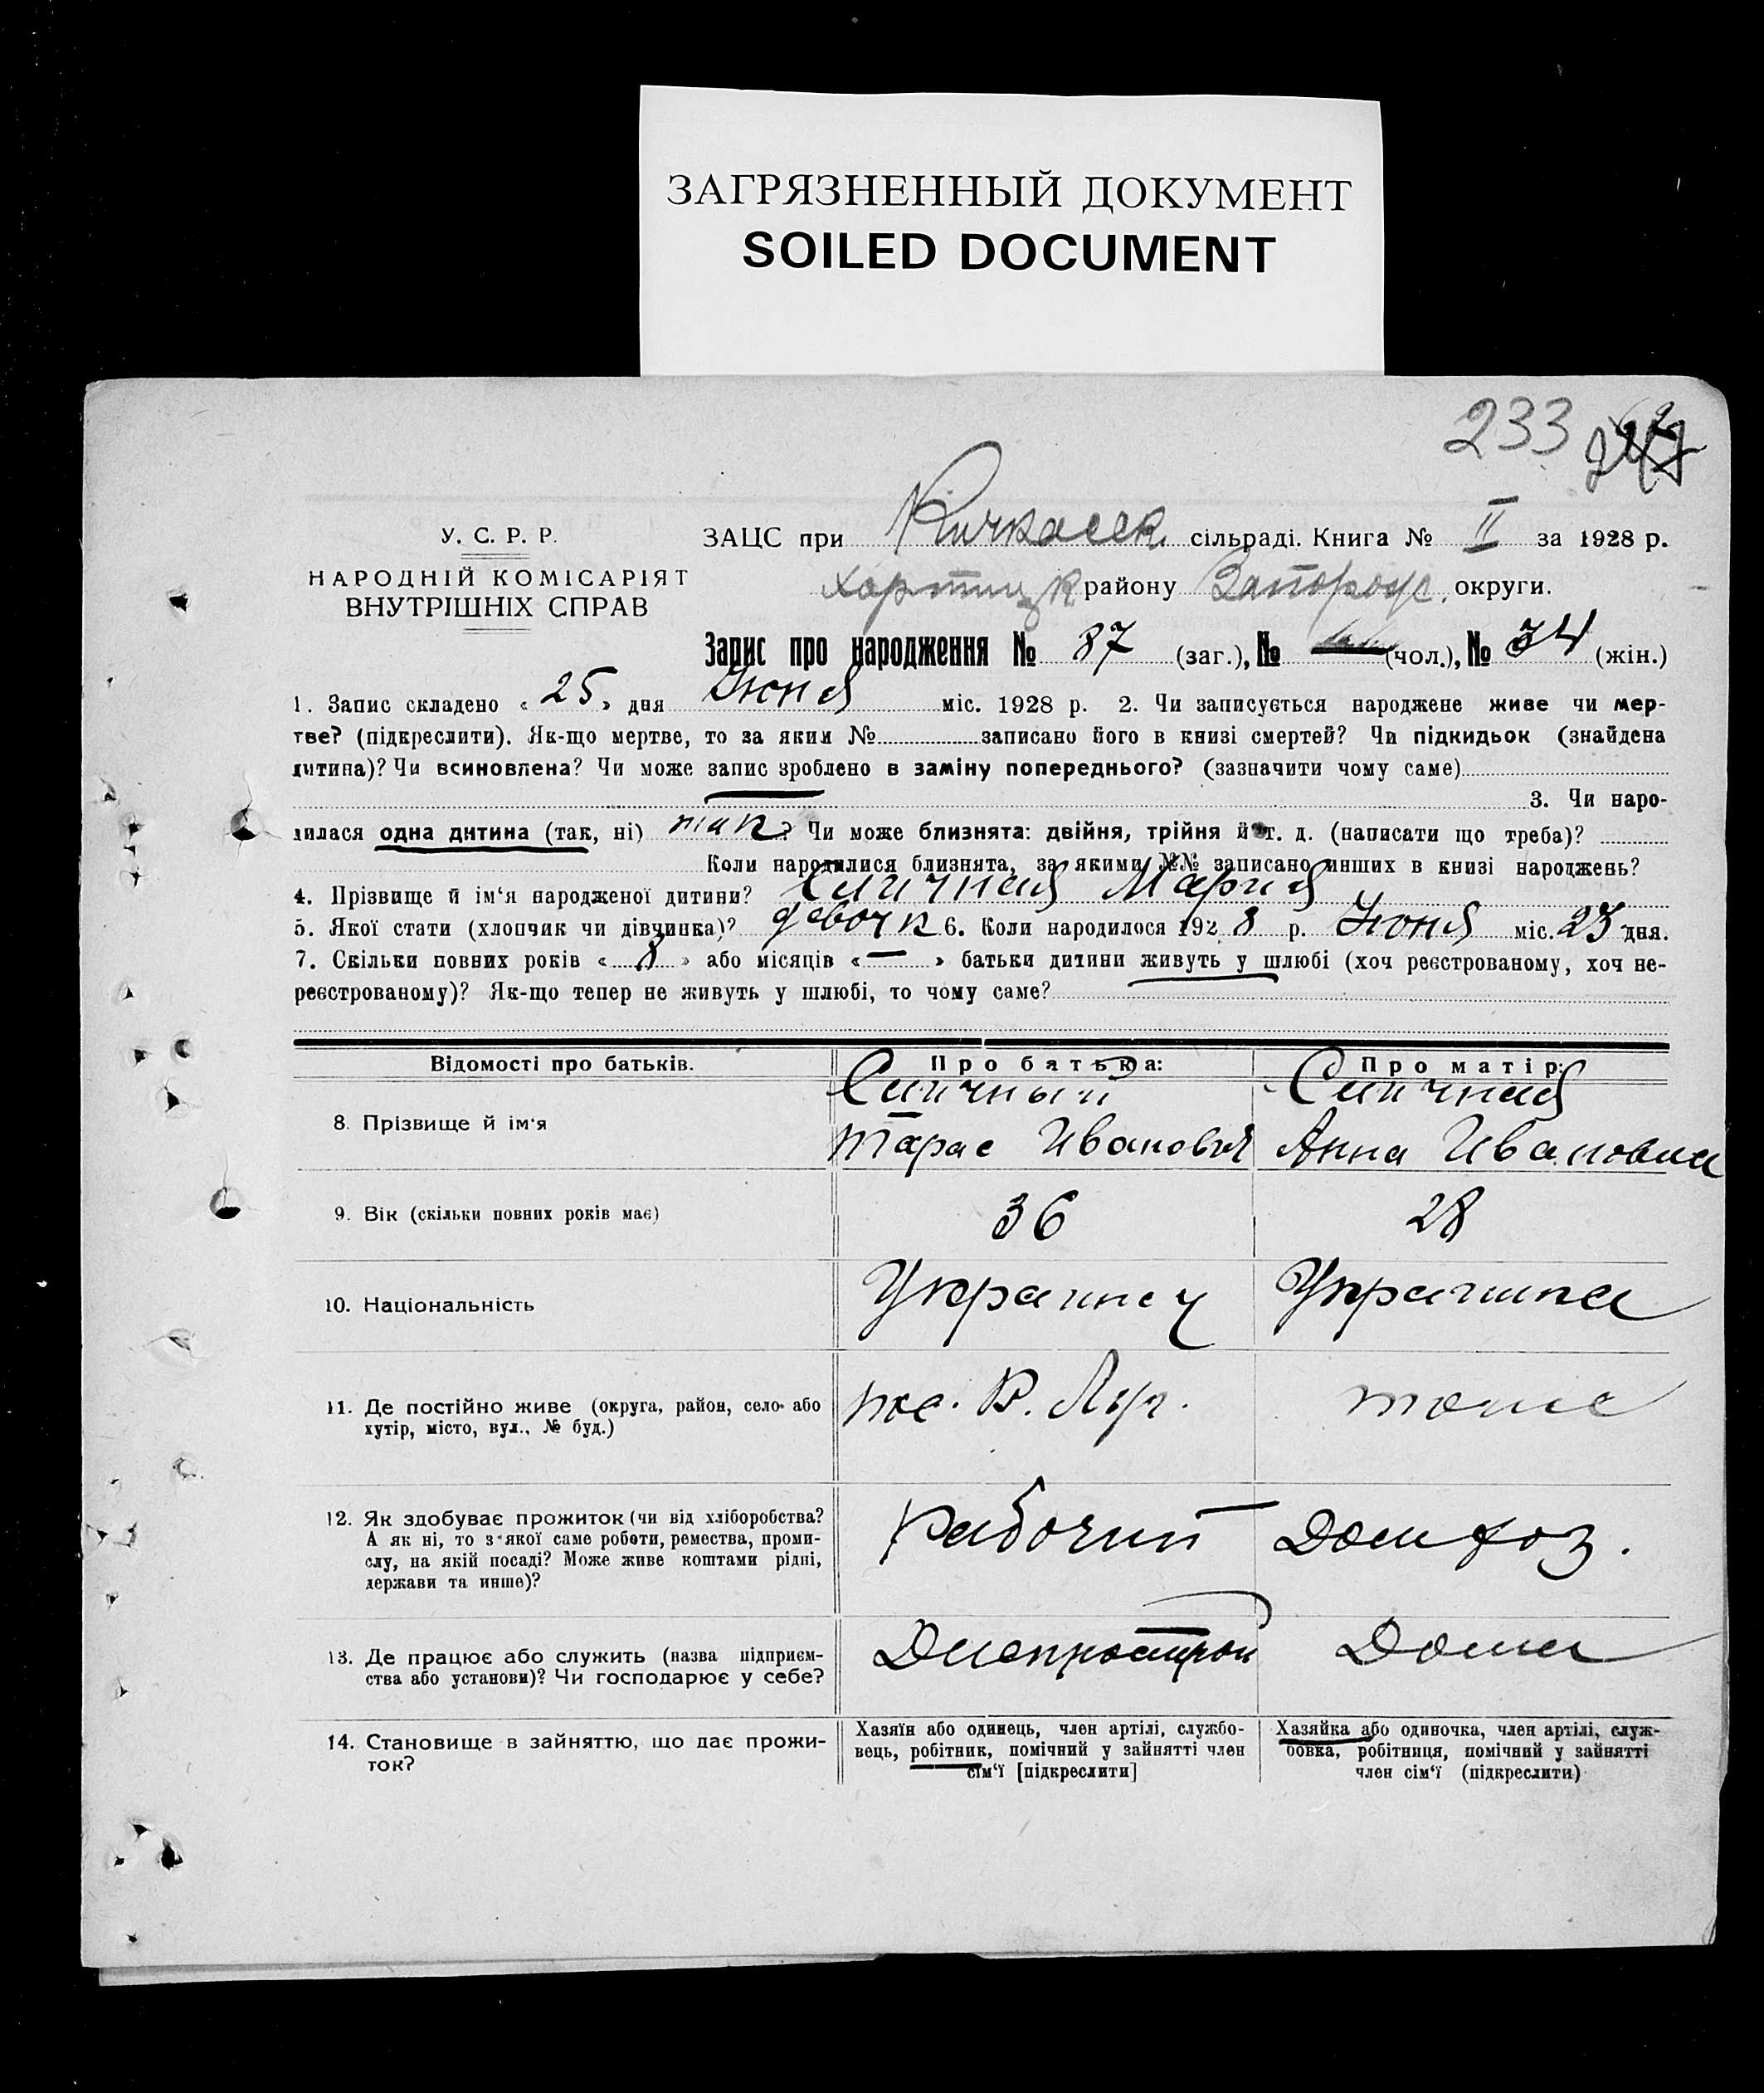 ЗАГРЯЗНЕННЫЙ ДОКУМЕНТ
SOILED DOCUMENT
233
У. С. Р. Р.
НАРОДНІЙ КОМІСАРІЯТ
ВНУТРІШНІХ СПРАВ
ЗАЦС при Кичкасск. сільраді. Книга № II за 1928 р.
Хортицк району Запорож. округи.
Запис про народження № 87 (заг.), № (чол.), № 34 (жін.)
1. Запис складено « 25 » дня Июня міс. 1928 р. 2. Чи записується народжене живе чи мер-
тве? (підкреслити). Як-що мертве, то за яким № записано його в книзі смертей? Чи підкидьок (знайдена
дитина)? Чи всиновлена? Чи може запис зроблено в заміну попереднього? (зазначити чому саме)
3. Чи наро-
дилася одна дитина (так, ні) так? Чи може близнята: двійня, трійня й т. д. (написати що треба)?
Коли народилися близнята, за якими №№ записано инших в книзі народжень?
4. Прізвище й ім'я народженої дитини? Мария
5. Якої статі (хлопчик чи дівчинка)? девочк 6. Коли народилося 1928 р. Июня міс. 23 дня.
7. Скільки повних років « 8 » або місяців « — » батьки дитини живуть у шлюбі (хоч реєстрованому, хоч не-
реєстрованому)? Як-що тепер не живуть у шлюбі, то чому саме?
Відомості про батьків. Про батька: Про матір:
8. Прізвище й ім'я
Тарас Иванович Анна Ивановна
9. Вік (скільки повних років має) 36 28
10. Національність Украинец Украинка
11. Де постійно живе (округа, район, село або
хутір, місто, вул., № буд.) пос. В. Луг. тоже
12. Як здобуває прожиток (чи від хліборобства?
А як ні, то з якої саме роботи, ремества, проми-
слу, на якій посаді? Може живе коштами рідні,
держави та инше)? Рабочий Домхоз.
13. Де працює або служить (назва підприєм-
ства або установи)? Чи господарює у себе? Днепрострой Дома
14. Становище в зайняттю, що дає прожи-
ток?
Хазяїн або одинець, член артілі, службо-
вець, робітник, помічний у зайнятті член
сім'ї [підкреслити]
Хазяйка або одиночка, член артілі, служ-
бовка, робітниця, помічний у зайнятті
член сім'ї (підкреслити)